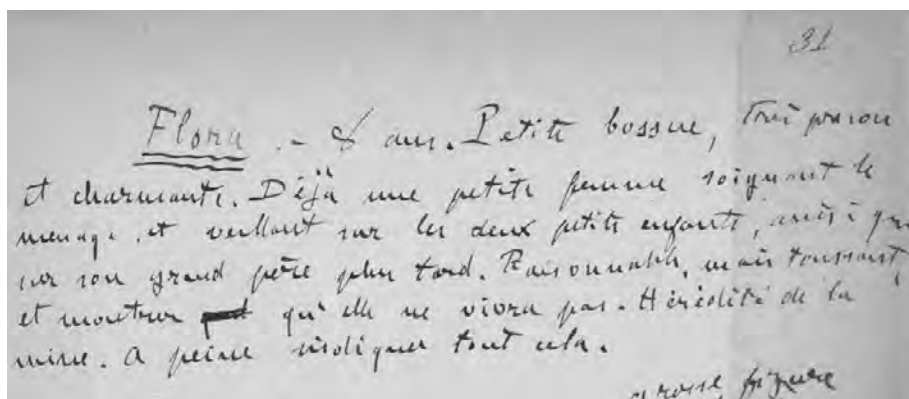 31
Flora. - 8 ans. Petite bossue, très
et charmante. Déjà une petite femme soignant le
ménage et veillant sur les deux petits enfants,
sur son grand père plus tard. Raisonnable, mais toussant,
et montrer qu'elle ne vivra pas. Hérédité de la
mine. A peine indiquer tout cela.
grosse figure